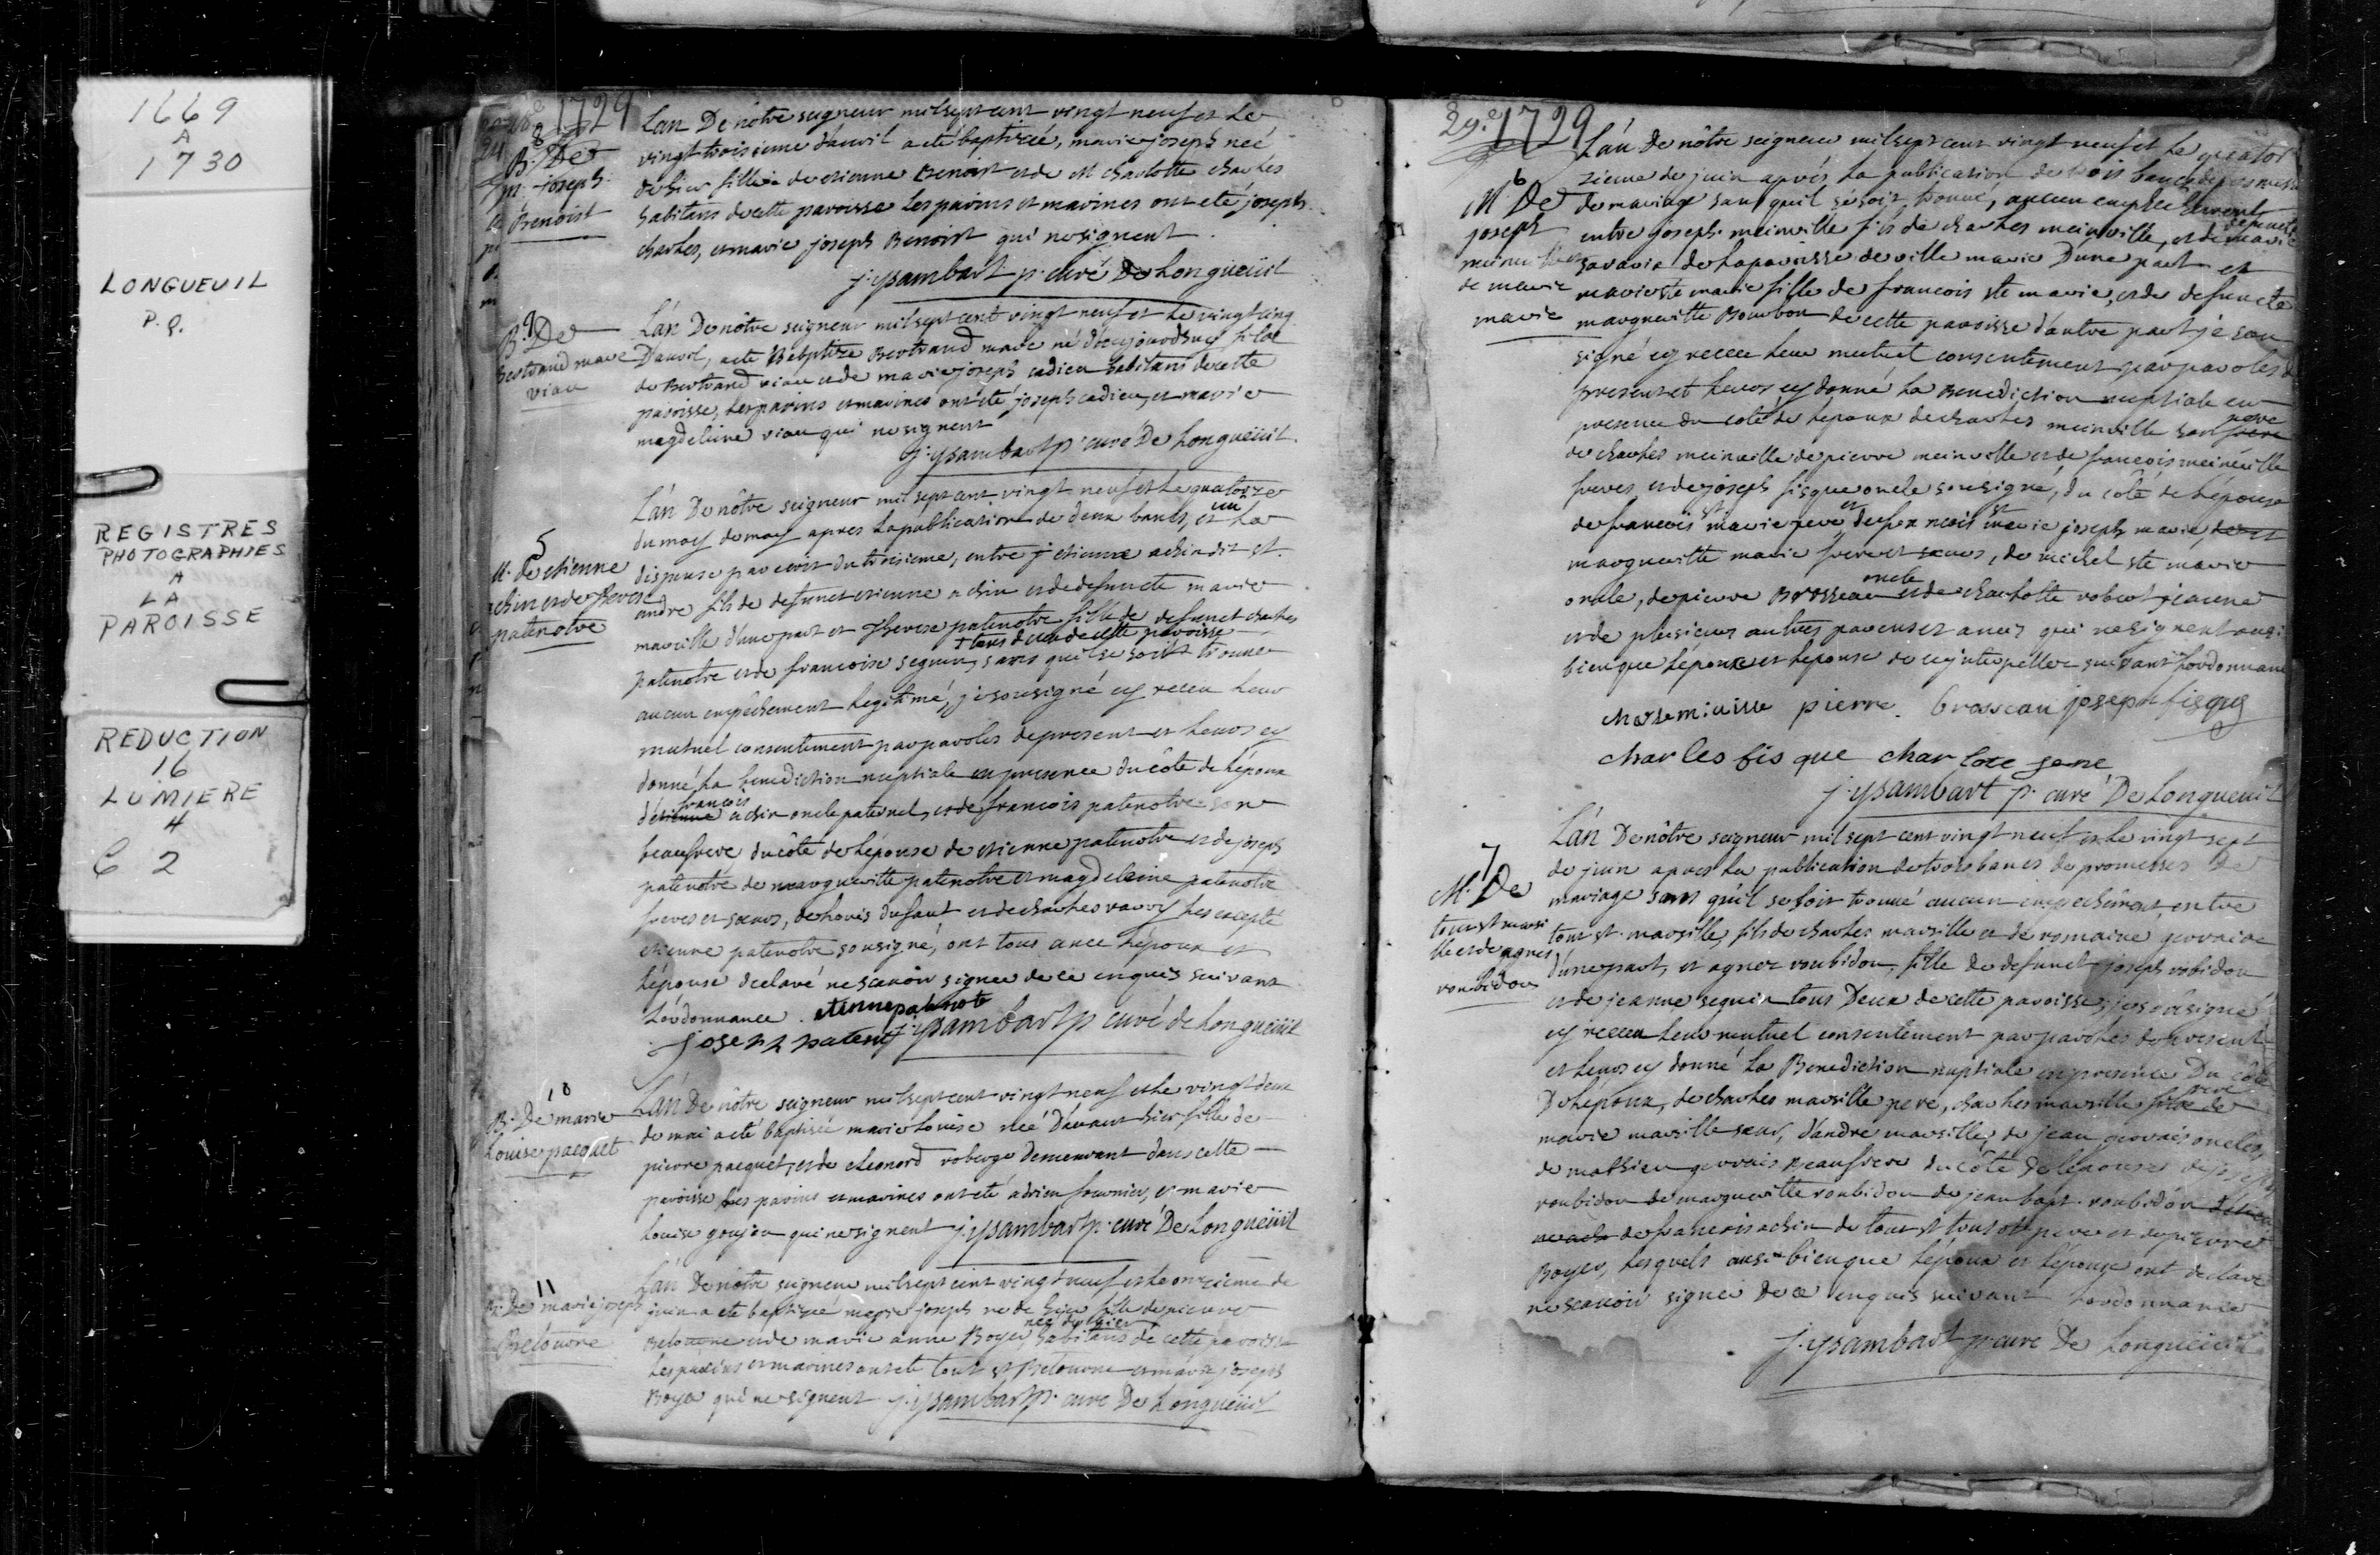 1669
A
1730
LONGUEUIL
P. Q.
REGISTRES
PHOTOGRAPHIES
A
LA
PAROISSE
REDUCTION
16
LUMIERE
4
C 2
1729
8
B. De
m. joseph
Benoist
L'an De nôtre seigneur mil sept cent vingt neuf et Le
vingt troisieme d'avril a eté baptizée, marie joseph neé
de hier fille de etienne Benoist et de charlotte charles
habitans de cette paroisse Les parins et marines ont eté joseph
charles, et marie joseph Benoist qui ne signent
j. ysambart p. curé De Longueüil
9
B. De
Bertrand marc
viau
L'an De nôtre seigneur mil sept cent vingt neuf et Le vingt cinq
D'avril, a eté Baptize Bertrand marc né d'aujourdhuy fils
de Bertrand viau et de marie joseph cadieu habitans de cette
paroisse, Les parins et marines ont eté joseph cadieu, et marie
magdeleine viau qui ne signent
j. ysambart p. curé De Longueüil.
5
M. de etienne
achin et de therese
patenotre
L'an De nôtre seigneur mil sept cent vingt neuf et Le quatorze
du moy de may apres La publication de deux bancs, et La
dispense par ecrit du troisieme, entre j etienne achin dit st.
andre fils de defunct etienne achin et de defuncte marie
marsille d'une part et Therese patenotre fille de defunct charles
+ tous deux de cette paroisse
patenotre et de francoise seguin, sans qu'il se soit trouvé
aucun empêchement legitimé, je sousigné ey receu Leur
mutuel consentement par paroles de present et Leurs ey
donné La benediction nuptiale en presence du côte de L'époux
francois
d'etienne achin oncle paternel, et de francois patenotre son
beaufrere du côte de L'épouse de etienne patenotre et de joseph
patenotre de marguerite patenotre et magdeleine patenotre
freres et soeurs, de Louis dufaut et de charles varry Les excepté
etienne patenotre sousigné, ont tous avec L'époux et
L'épouse declaré ne scavoir signer de ce enquis suivant
L'ordonnance. etienne patenote
joseph patent j. ysambart p. curé de Longueüil
10
B. De marie
Louise pacquet
L'an De nôtre seigneur mil sept cent vingt neuf et Le vingt deux
de mai a eté baptisée marie Louise neé D'avant hier fille de
pierre pacquet, et de eleonord roberge demeurant dans cette
paroisse Les parins et marines ont eté adrien fournier, et marie
Louise goujou qui ne signent j. ysambart p. curé De Longueüil
11
B. De marie joseph
Betourne
L'an De nôtre seigneur mil sept cent vingt neuf et Le onzieme de
juin a eté baptizée marie joseph ne de hier fille de pierre
Betourne et de marie anne Boyer, habitans de cette paroisse
Les parins et marines ont eté tout st Betourne et marie joseph
Boyer qui ne signent j. ysambart p. curé De Longueüil
29.e 1729
6
M. De
joseph
meinville
de marie
marie
L'an De nôtre seigneur mil sept cent vingt neuf et Le quator
zieme de juin aprés La publication de trois bancs de promesse
de mariage sans qu'il se soit trouvé, aucun empechement
defuncte
entre joseph meinville fils de charles meinville, et de marie
savaria de La paroisse de ville marie D'une part et
marie ste marie fille de francois ste marie, et de defuncte
marguerite Bourbon de cette paroisse d'autre part je sou
signé ey receu Leur mutuel consentement par paroles de
present et Leurs ey donné La Benediction nuptiale en
presence du coté de L'epoux de charles meinville son pere
de charles meinville de pierre meinville et de francois meinville
freres et de joseph fisque oncle sousigné, du coté de L'épouse
de francois st marie pere et de francois st marie joseph marie,
marguerite marie frere et soeurs, de michel ste marie
oncle, de pierre Brosseau oncle et de charlotte robert jeanne
et de plusieurs autres parens et amis qui ne signent ausi
bien que L'époux et L'épouse de ce interpellée suivant L'ordonnance
pierre. brosseau joseph fisque
charles fis que charlote jene
j. ysambart p. curé De Longueuil
7
M. De
tous st marsi
lle et de agnes
roubidou
L'an De nôtre seigneur mil sept cent vingt neuf et Le vingt sept
de juin apres La publication de trois bancs de promesses De
mariage sans qu'il se soit trouvé aucun empechement, entre
tous st. marsille, fils de charles marsille et de romaine gervaise
d'une part, et agnes roubidou, fille de defunct joseph robidou
et de jeanne seguin tous Deux de cette paroisse, je sousigné
ey receu Leur mutuel consentement par paroles de present
et Leurs ey donné La Benediction nuptiale en presence Du côté
De L'époux, de charles marsille pere, charles marsille frere de
marie marsille soeur, d'andré marsille, de jean gervais oncles,
de mathieu gervais Beaufrere du côté de L'épouse de joseph
roubidou de marguerite roubidou de jean bapt. roubidou
de francois achin de tous st pere et de pierre
Boyer, Lesquels ausi bien que L'époux et L'épouse ont declaré
ne scavoir signer de ce enquis suivant L'ordonnance
j. ysambart p. curé De Longueüil